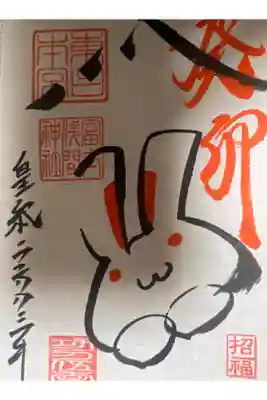 癸卯
東口
本宮
冨士
浅間
神社
皇紀二六八三年
招福